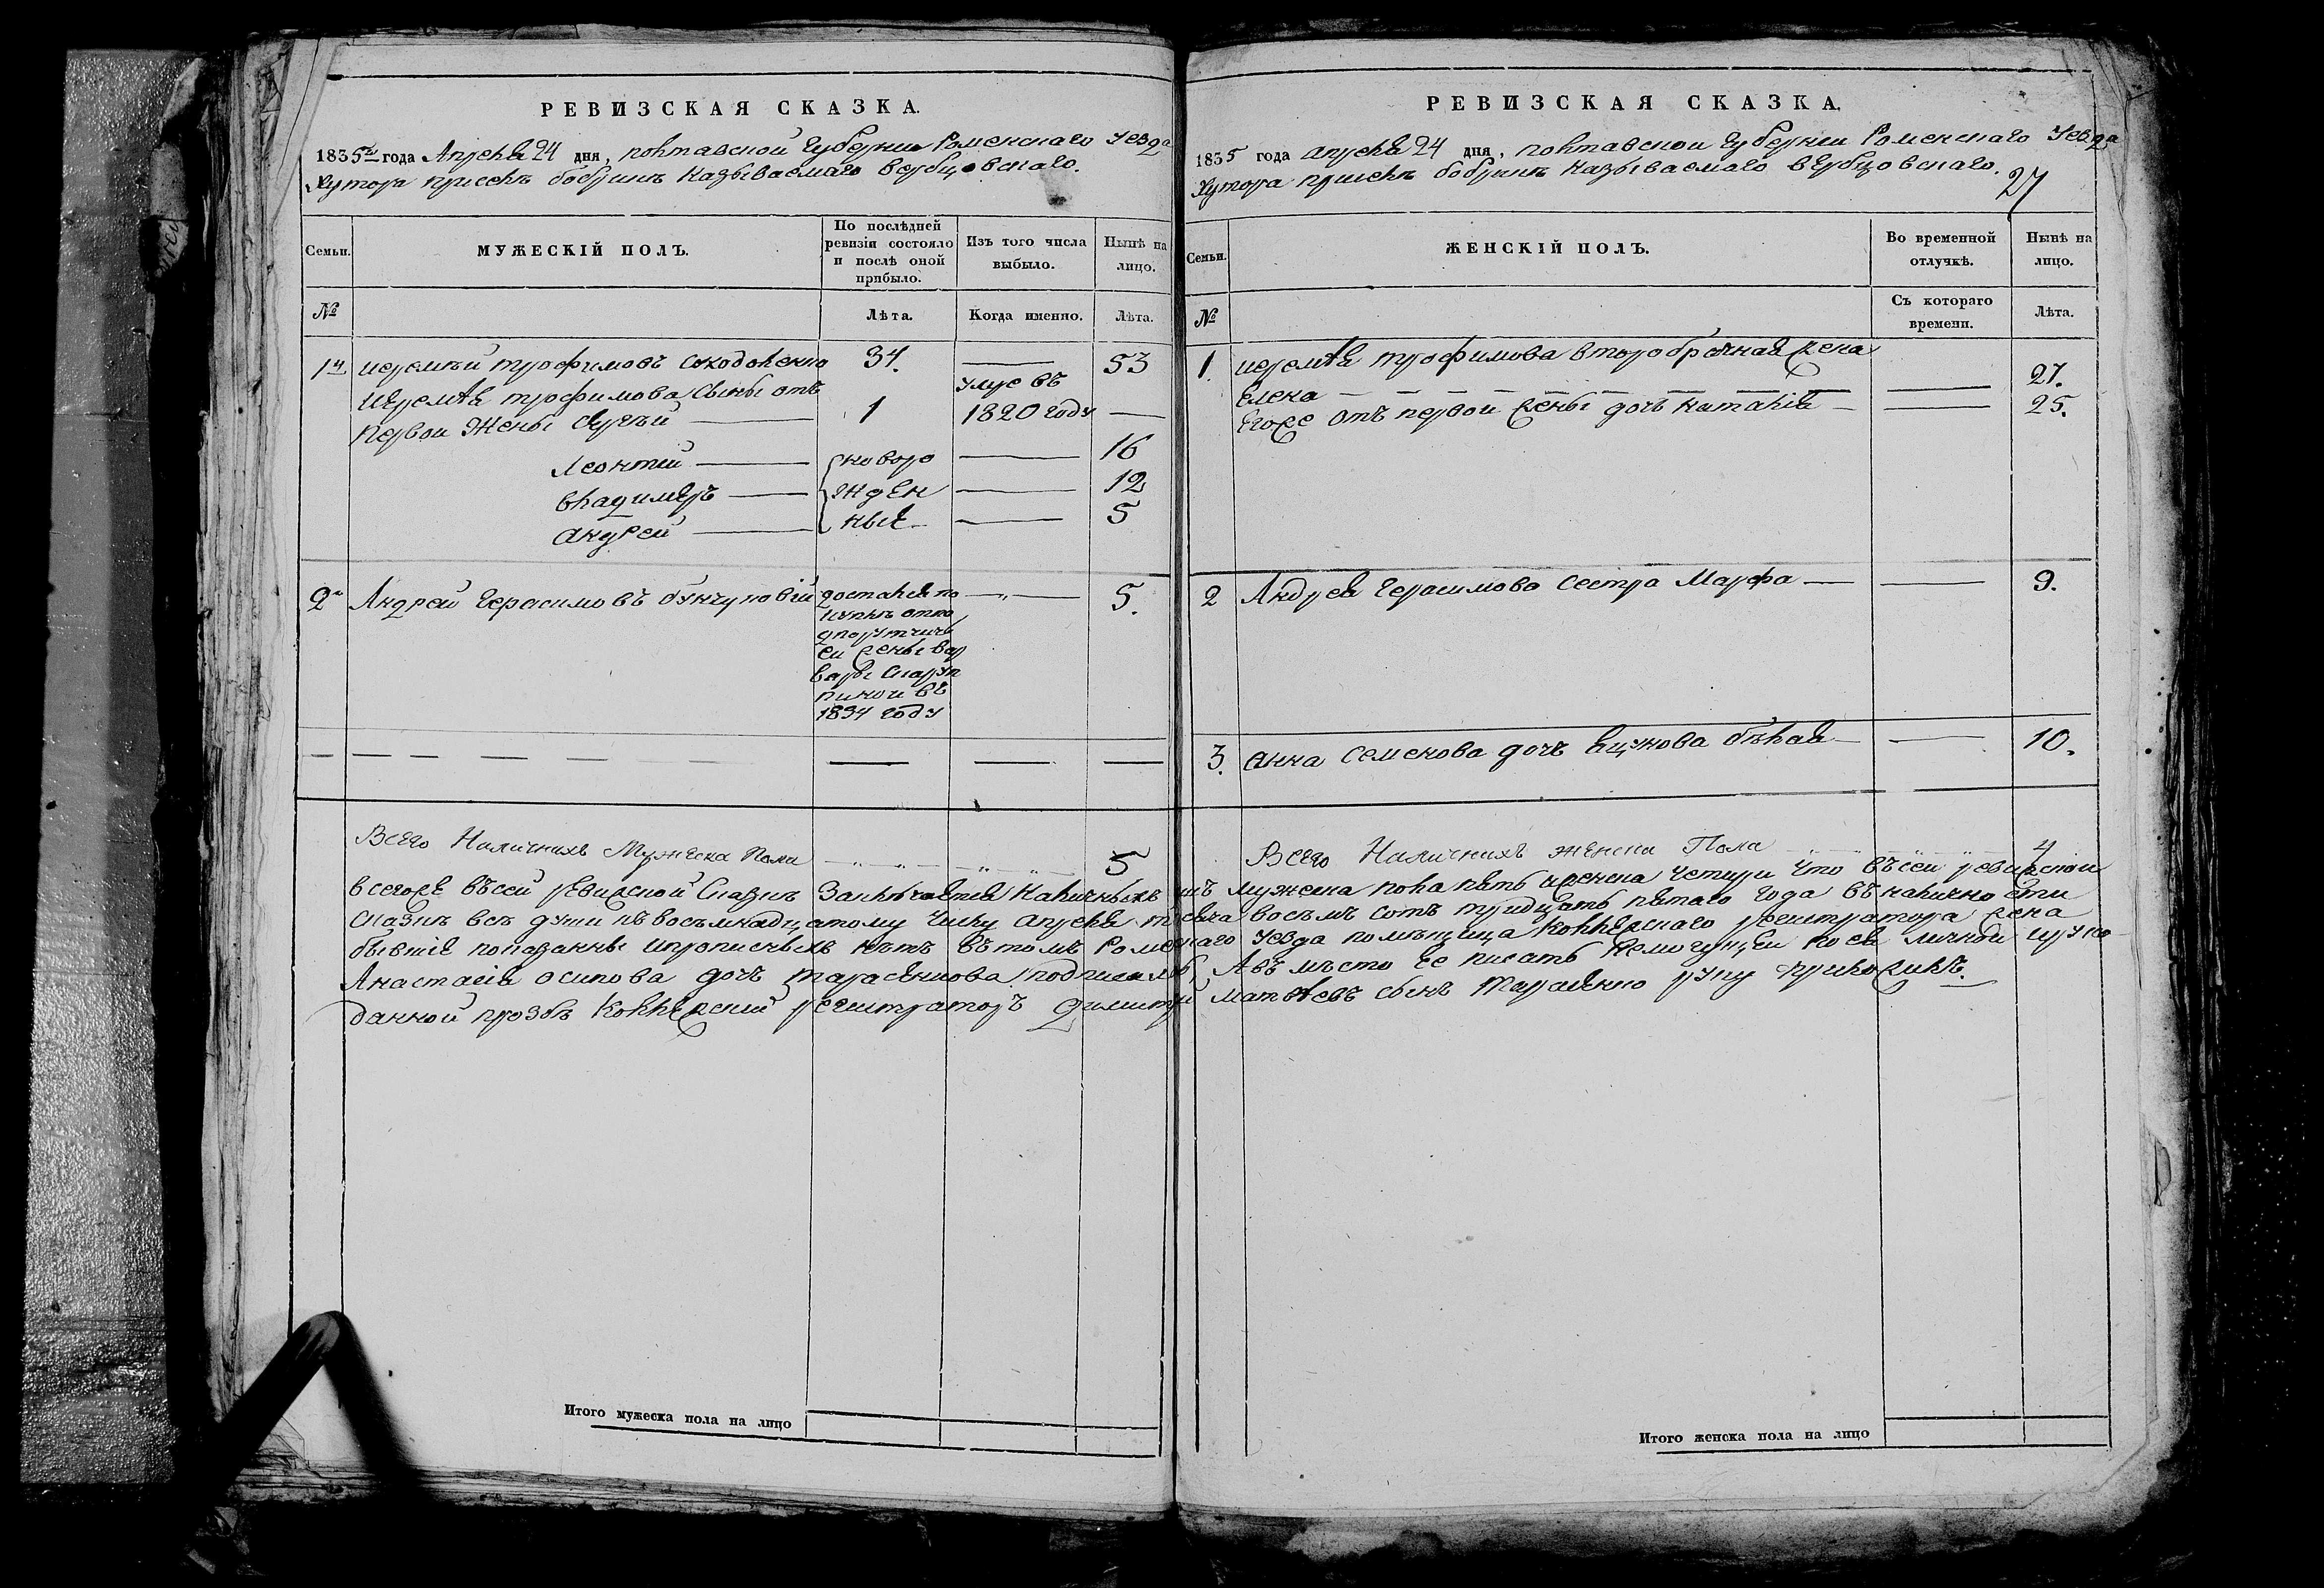 РЕВИЗСКАЯ СКАЗКА.
1835го года Апреля 24 дня, полтавской Губернии Роменского Уезда
Хутора присель бобрикъ называемаго вербцовскаго.
Семьи.
МУЖЕСКІЙ ПОЛЪ.
По послѣдней ревизіи состояло и послѣ оной прибыло.
Изъ того числа выбыло.
Нынѣ на лицо.
№
Лѣта.
Когда именно.
Лѣта.
1й иеремѣй трофимовъ 34. — 53
Иеремѣя трофимова Сыны отъ умре въ
первой Жены Сергѣй — 1 1820 году —
Леонтий — новоро — 16
владимеръ — жден — 12
андрей — ные — 5
2й Андрей Герасимовъ 5.
достался по
купкѣ от по
дпорутчич
ей жены вар
вары
въ
1834 году
Всего Наличныхъ Мужеска Пола 5
РЕВИЗСКАЯ СКАЗКА.
1835 года апреля 24 дня, полтавской Губернии Роменского Уезда
Хутора присель бобрикъ называемаго вербцовскаго.
27
Семьи.
ЖЕНСКІЙ ПОЛЪ.
Во временной отлучкѣ.
Нынѣ на лицо.
№
Съ котораго времени.
Лѣта.
1. иеремѣя трофимова второбрачная жена
елена — — 27.
Егоже отъ первой жены дочь наталія — — 25.
2 Андрея Герасимова сестра Марфа — — 9.
3. анна семенова дочь — 10.
Всего Наличнихъ женска Пола 4
всегоже въсей ревизской Сказкѣ Заключается наличныхъ мужеска пола пять женска четири что въсей ревизской
Сказкѣ всѣ души къ восъмнадцатому числу апреля тысяча восемъ сотъ тридцать пятаго года въ наличности
бывшие показанны ипрописныхъ нѣтъ въ томъ Роменскаго Уезда помѣщица Коллежскаго регистратора жена
Анастасія осипова дочь подписалась, А въ мѣсто ее писать немогущей по ея личной
данной прозбѣ Коллежский регистраторъ Димитрий матвѣевъ сынъ руку приложилъ.
Итого мужеска пола на лицо
Итого женска пола на лицо